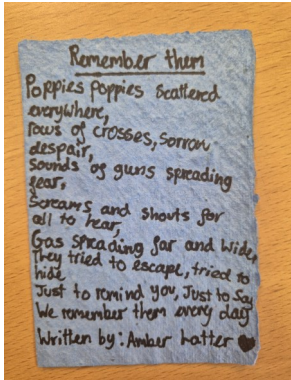 Remember them
Poppies Poppies Scattered
everywhere,
rows of crosses, sorrow
despair,
Sounds of guns spreading
fear,
Screams and shouts for
all to hear,
Gas spreading far and wide,
They tried to escape, tried to
hide
Just to remind you, Just to Say
We remember them every day
Written by: Amber Latter